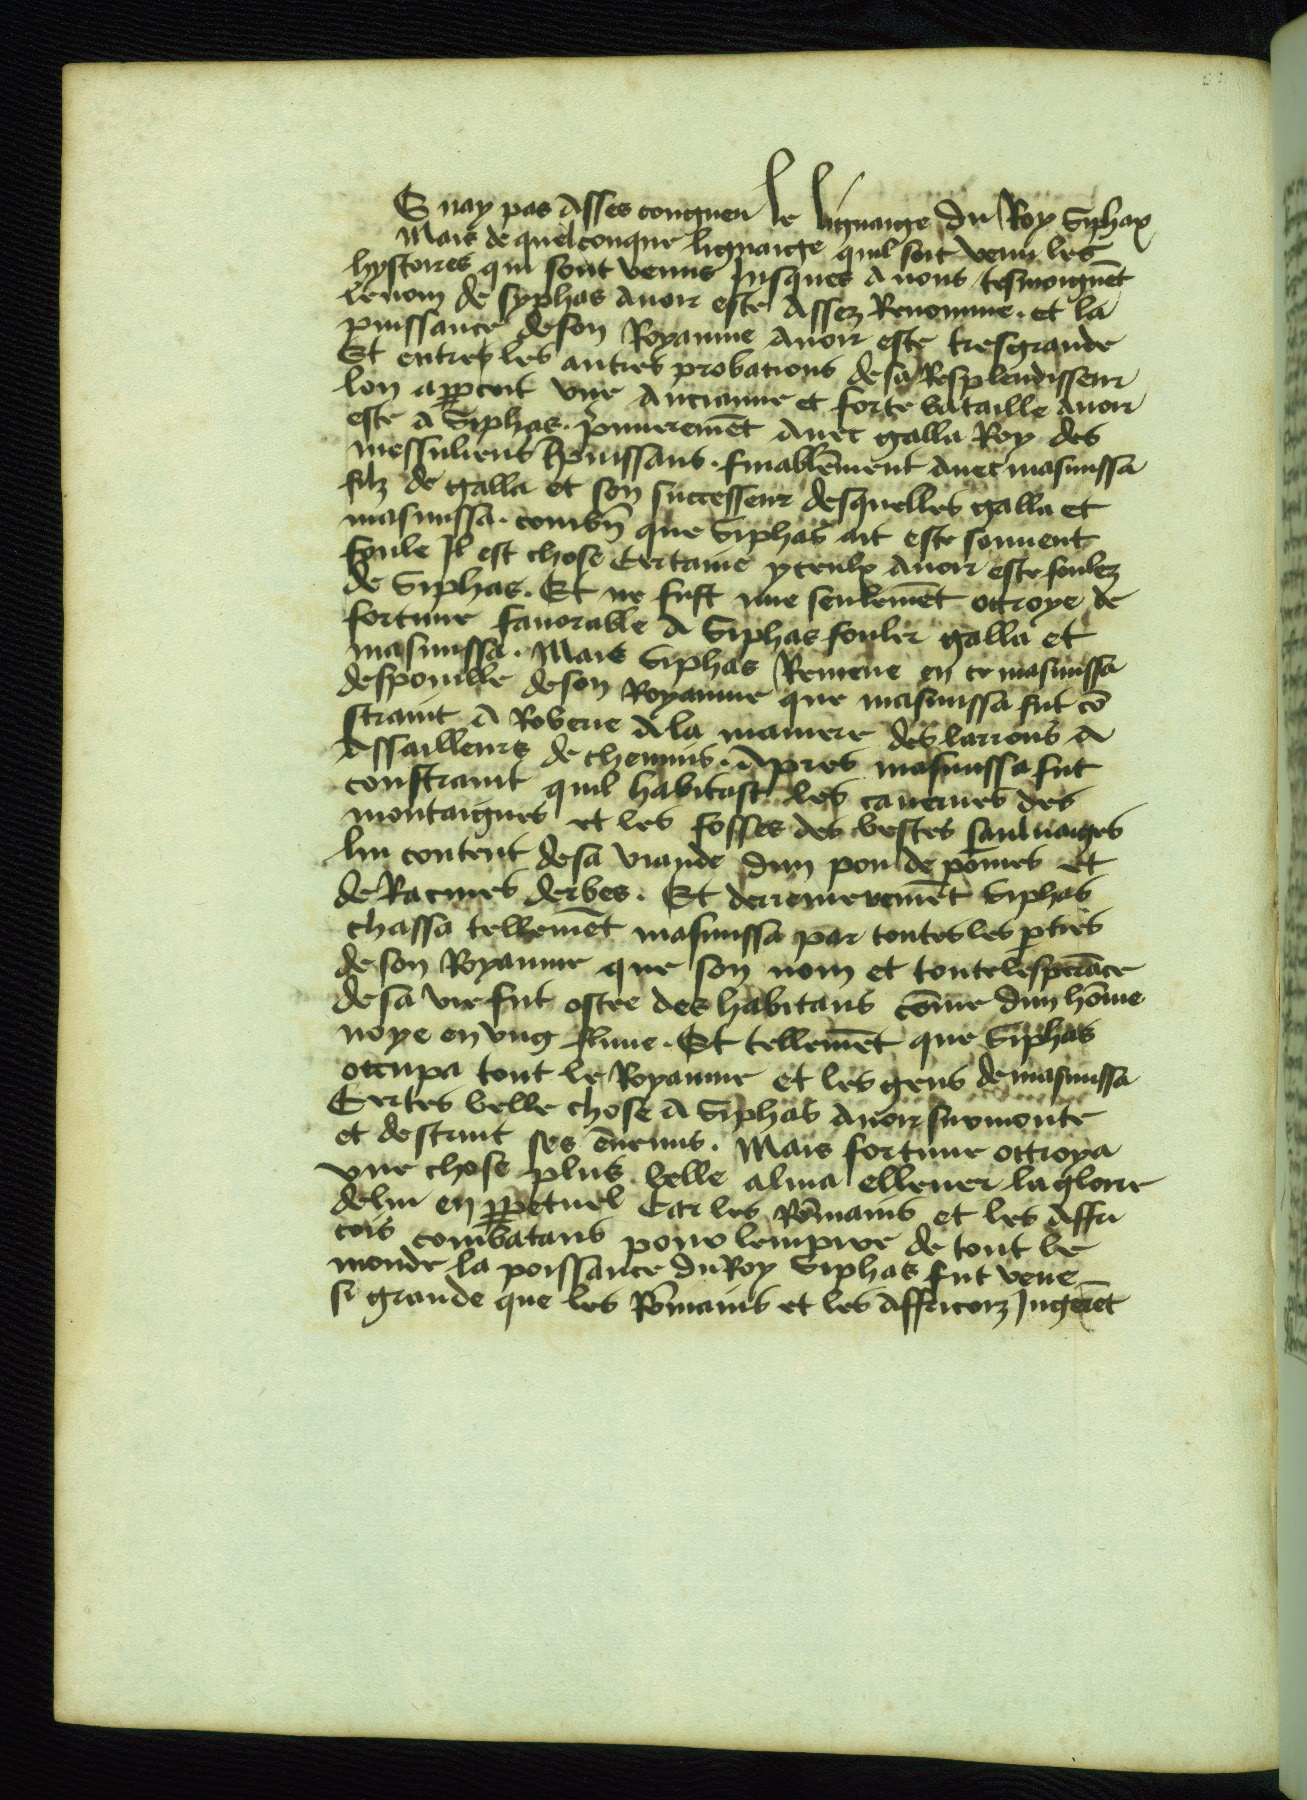 E nay pas asses congneu le lignaige du Roy Siphax
Mais de quelconque lignaige quil soit venu les
hystoires qui sont venus Jusques a nous tesmoignēt
le nom de syphas auoir este assez Renomme. et la
puissance de son Royaume auoir este tresgrande
Et entre les autres probations de sa Resplendisseur
lon apꝑcoit vne ancianne et forte bataille auoir
este a Siphas. p̄mieremēt auec galla Roy des
messuliens puissans. finablemēnt auec masinissa
filz de galla et son successeur desquelles galla et
masinissa. combn̄ que Siphas ait este souuent
foule Il est chose Certaine yceulx auoir este foulez
de Siphas. Et ne fust mie seulemēt ottroye de
fortune fauorable a Siphas fouler galla et
masinissa. Mais Siphas Remene en ce masinissa
despouille de son Royaume que masinissa fut cō
straint a Roberie a la maniere des larrons a
assailleurs de chemins. Apres masinissa fut
constraint quil habitast les cauernes des
montaignes et les fosses des bestes sauluaiges
lui content de sa viande dun pou de pōmes et
de Racines derbes. Et derrenierement Siphas
chassa tellemēt masinissa par toutes les ꝑties
de son Royaume que son nom et toute lesperāce
de sa vie fut ostee des habitans cōme dun hōme
noye en vng fluue. Et tellemēt que Siphas
occupa tout le Royaume et les gens de masinissa
Certes belle chose a Siphas auoir surmonte
et destruit ses ēnemis. Mais fortune ottroya
vne chose plus belle a lui a esleuer la gloire
de lui en ꝑpetuel Car les Rōmains et les affri
cois combatans pour lempire de tout le
monde la poissance du Roy Siphas fut veue
si grande que les Rōmains et les affricoiz Jugerēt